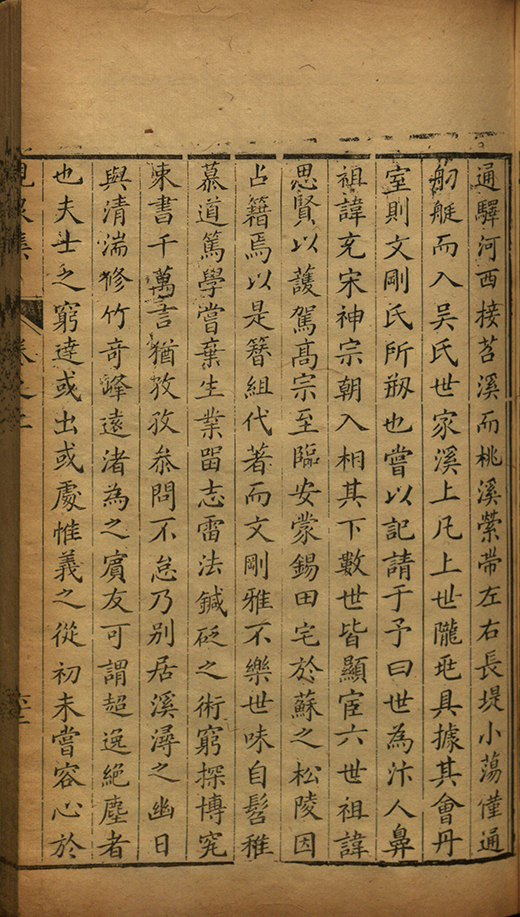 通驛河西接苕溪而桃溪縈帶左右長堤小蕩僅通
舠艇而入吳氏世家溪上凡上世隴宅具據其會丹
室則文剛氏所刱也嘗以記請于予曰世為汴人鼻
祖諱充宋神宗朝入相其下數世皆顯宦六世祖諱
思賢以護駕髙宗至臨安蒙錫田宅於蘇之松陵因
占籍焉以是簪組代著而文剛雅不樂世味自髫稚
慕道篤學嘗棄生業畱志雷法鍼砭之術窮探博究
東書千萬言猶孜孜叅問不怠乃别居溪潯之幽日
與清湍修竹奇峰遠渚為之賓友可謂超逸絶塵者
也夫士之窮達或出或處惟義之從初未嘗容心於